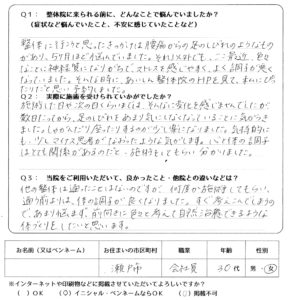 Q1： 整体院に来られる前に、どんなことで悩んでいましたか？
（症状など悩んでいたこと、不安に感じていたことなど）
整体に行こうと思ったきっかけは腰痛からの足のしびれのようなもの
があり、5ヶ月ほど悩んでいました。それ以外でも、ここ最近、色々
なことに神経質になりがちで、ストレスを感じやすく、よく調子が悪く
なっていました。そんな時に、あいしん整体院のHPを見て、本当にぴ
ったりだと思い予約しました。
Q2： 実際に施術を受けられていかがでしたか？
施術した日や次の日くらいまでは、そんなに変化を感じませんでしたが
数日たってから、足のしびれをあまり気にしなくなっていることに気づき
ました。しゃがんだり座ったりするのが少し楽になりました。気持的に
も、少しマイナス思考がなおったような気がします。心と体の調子
はとても関係があるのだと、施術をしてもらい分かりました。
Q3： 当院をご利用いただいて、良かったこと・他院との違いなどは？
他の整体は通ったことはないのですが、何度か施術をしてもらい、
通う前よりは、体の調子が良くなりました。すぐ考えこんでしまうの
で、あまり悩まず、前向きに色々と考えて自然治癒できるような
体づくりをしたいと思います。
お名前（又はペンネーム） お住まいの市区町村 職業 年齢 性別
瀬戸市 会社員 30代 男・女
※インターネットや印刷物などに掲載させていただいてよろしいでしょうか？
（ ）OK （○）イニシャル・ペンネームならOK （ ）掲載不可